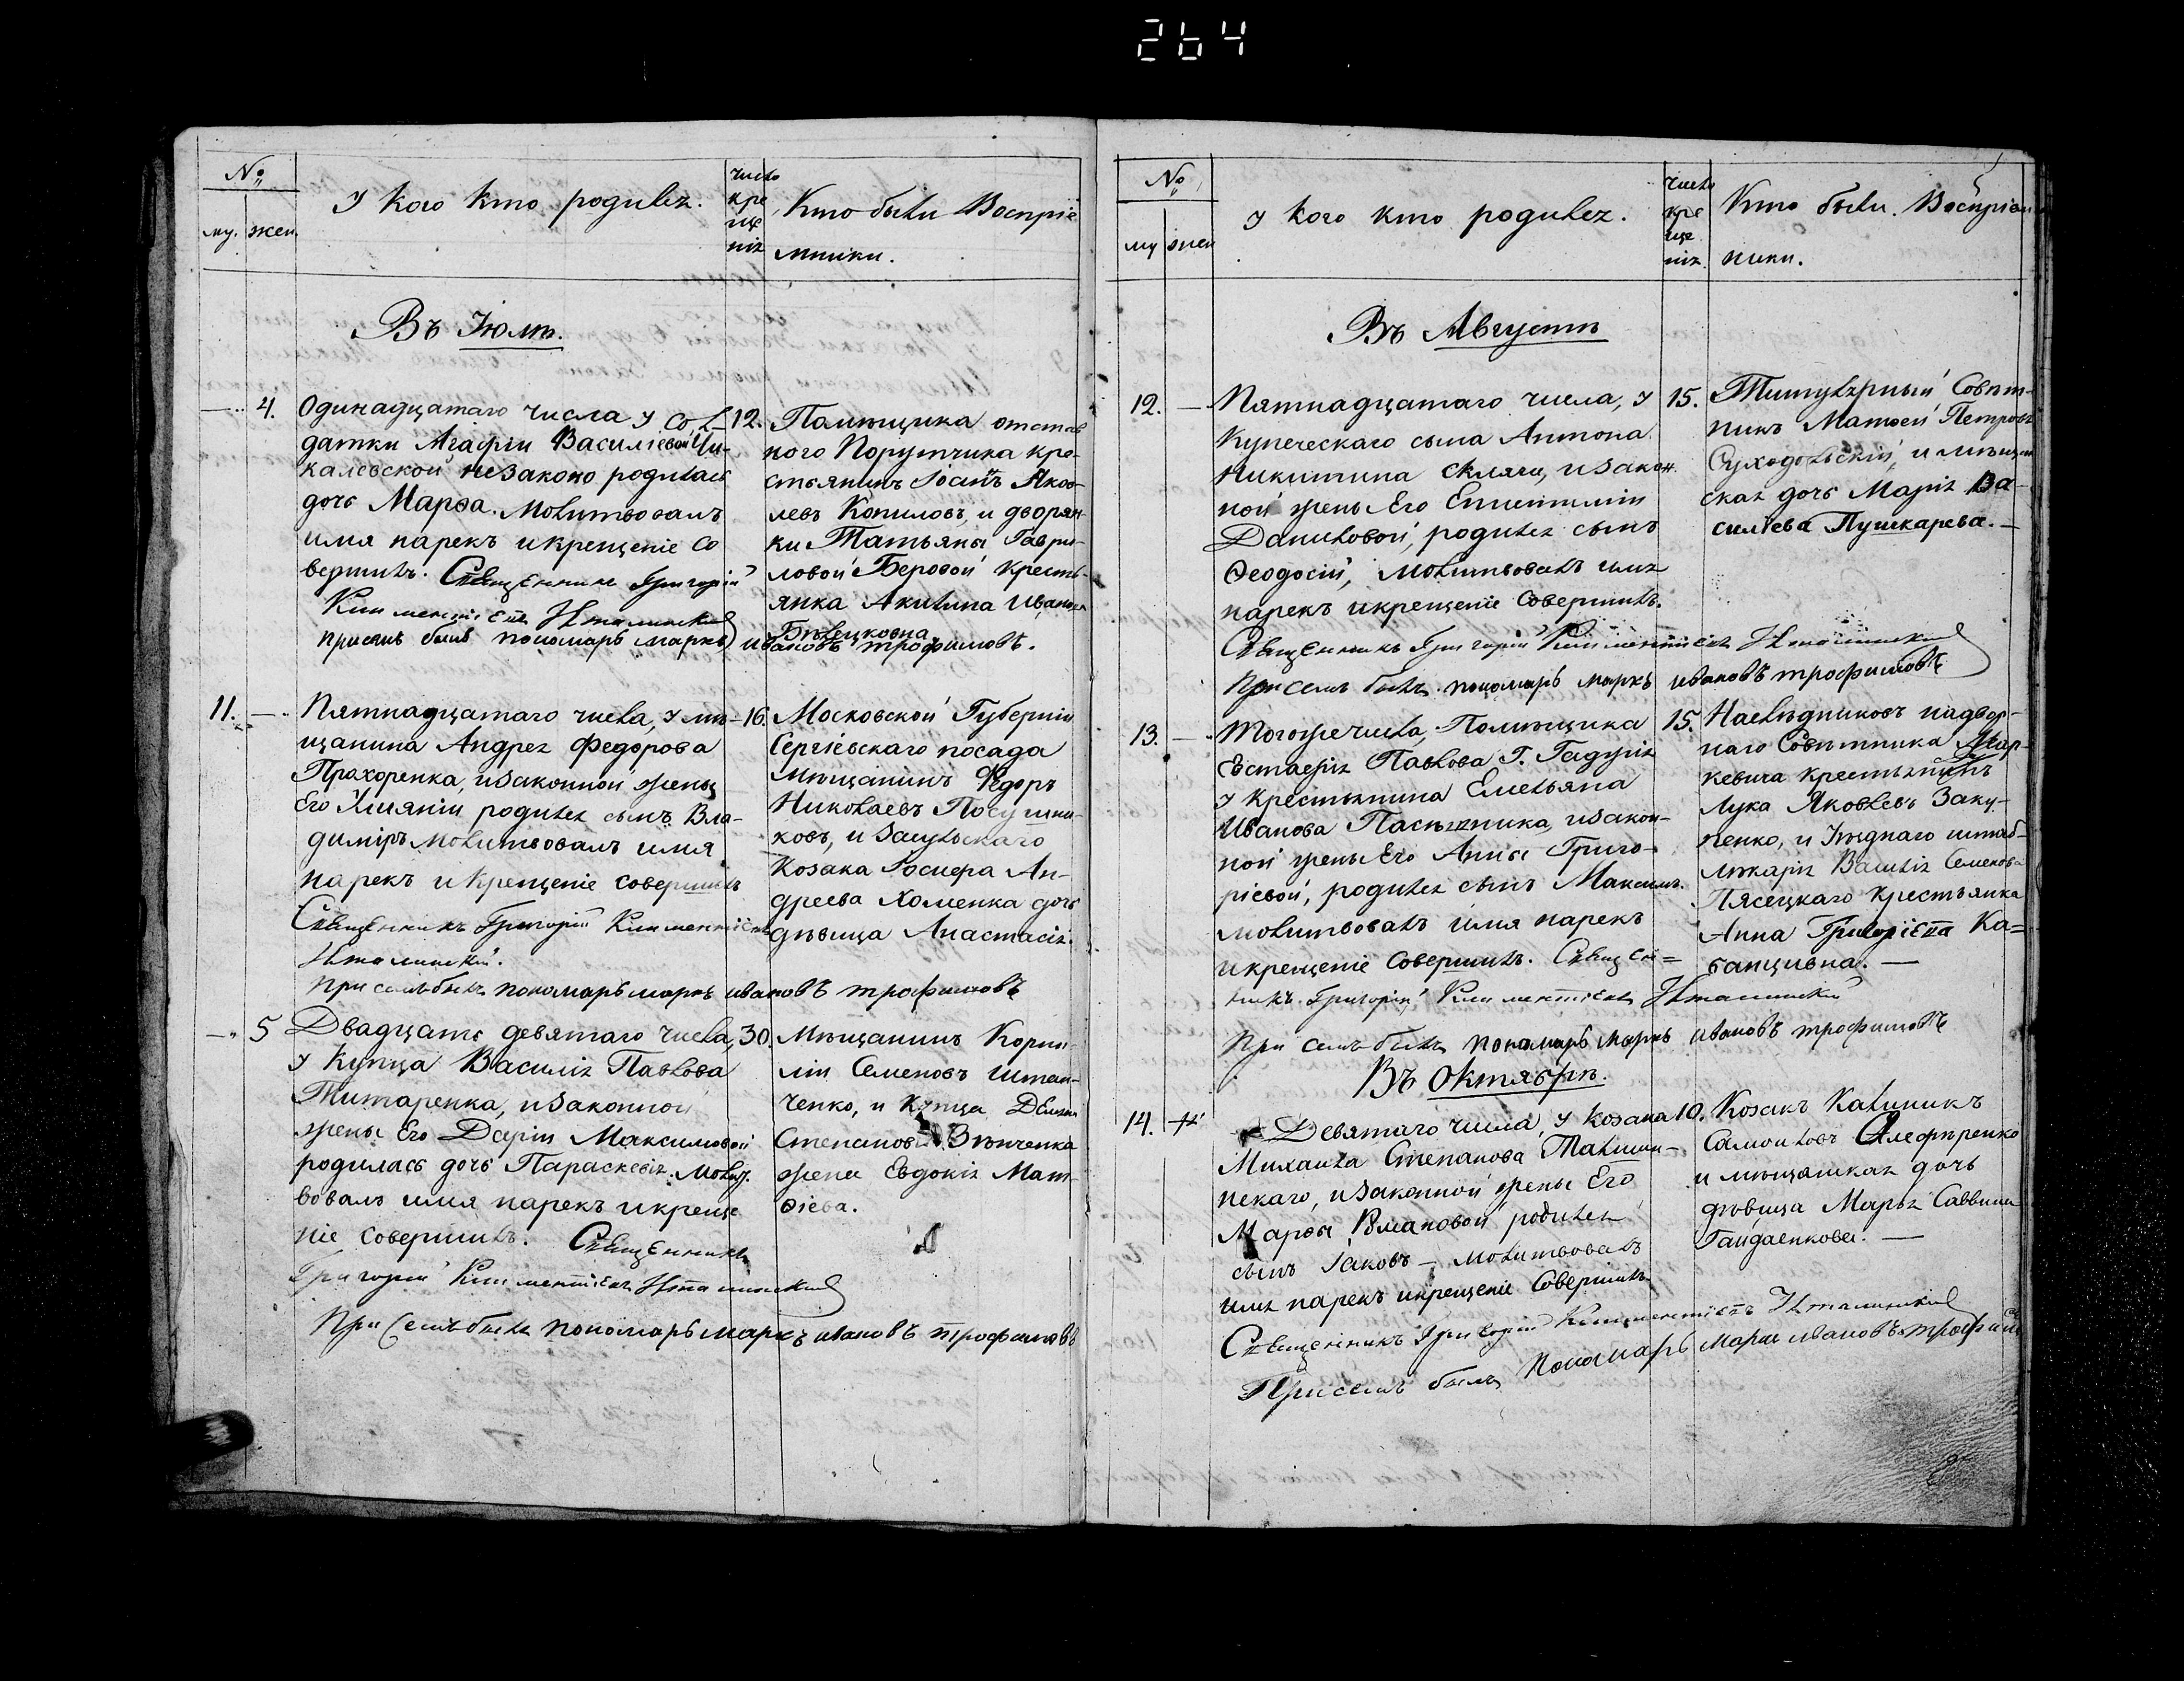 264
№
У кого кто родился.
число
кре
ще
нія
Кто были Воспріе
мники.
му. жен.
Въ Іюлѣ.
4. Одинадцатаго числа у сол-
датки Агафіи Василіевой Чи-
калевской незаконо родилась
дочь Марѳа. Молитвовалъ
имя нарекъ и крещеніе со
вершилъ. Священникъ Григорій
Климентіевъ
При семъ былъ пономарь маркъ ивановъ трофимовъ.
12. Помѣщика отстав
ного Порутчика кре-
стьянинъ Іоанъ Яков-
левъ Копиловъ, и дворян-
ки Татьяны Гаври-
ловой Беровой кресть-
янка Акилина Иванова
Бѣлецковна
11. Пятнадцатаго числа, у мѣ-
щанина Андрея Федорова
Прохоренка, и законной жены
Его родился сынъ Вла-
димiръ молитвовалъ имя
нарекъ и крещеніе совершилъ
Священникъ Григорій Климентіевъ
При семъ былъ пономарь маркъ ивановъ трофимовъ
16. Московской Губерніи
Сергіевскаго посада
мѣщанинъ Федоръ
Николаевъ Посушни-
ковъ, и Засульскаго
Козака Іосифа Ан-
дреева Хоменка дочь
дѣвица Анастасія.
5 Двадцать девятаго числа,
у Купца Василія Павлова
Титаренка, и законной
жены Его Даріи Максимовой
родилась дочь Параскевія. Молит.
вовалъ имя нарекъ и креще
ніе совершилъ. Священникъ
Григорій Климентіевъ
При семъ былъ пономарь маркъ ивановъ трофимовъ
30. Мѣщанинъ Корни-
лій Семеновъ Штан-
ченко, и купца
Степанова Зѣнченка
жена Евдокія Мат-
ѳіева.
№
У кого кто родился.
число
кре
ще
нія.
Кто были. Воспріем
ники.
му жен
Въ Августѣ
12. Пятнадцатаго числа, у
Купеческаго сына Антона
Никитина Скляра, и закон.
ной жены Его Епистиміи
Даниловой, родился сынъ
Ѳеодосій, молитвовалъ имя
нарекъ и крещеніе совершилъ.
Священникъ Григорій Климентіевъ
При семъ былъ пономарь маркъ ивановъ трофимовъ
15. Титулярный Совѣт-
никъ Матѳей Петровъ
Суходольскій, и мѣщан
ская дочь Марія Ва-
силіева Пушкарева.
13. Тогоже числа, Помѣщика
Естафія Павлова Г. Гадуція
у крестьянина Емельяна
Иванова Пасѣчника, и закон-
ной жены Его Анны Григо-
ріевой, родился сынъ Максимъ.
молитвовалъ имя нарекъ
и крещеніе совершилъ. Священ=
никъ Григорій Климентіевъ
При семъ былъ пономарь маркъ ивановъ трофимовъ
15. Наслѣдниковъ надвор-
наго Совѣтника Мар-
кевича крестьянинъ
Лука Яковлевъ Заку-
пенко, и Уѣзднаго штаб-
лѣкаря Василія Семенова
Пясецкаго крестьянка
Анна Григоріева Ка=
банцивна.
Въ Октябрѣ.
14. Девятаго числа, у козака
Михаила Степанова Талиш-
нскаго, и законной жены Его
Марѳы Романовой родился
сынъ Іаковъ — молитвовалъ
имя нарекъ и крещеніе совершилъ
Священникъ Григорій Климентіевъ
При семъ былъ пономарь маркъ ивановъ трофимов
10. Козакъ Калиникъ
Самойловъ Алефиренко
и мѣщанская дочь
дѣвица Марья Саввина
Гайдаенкова.